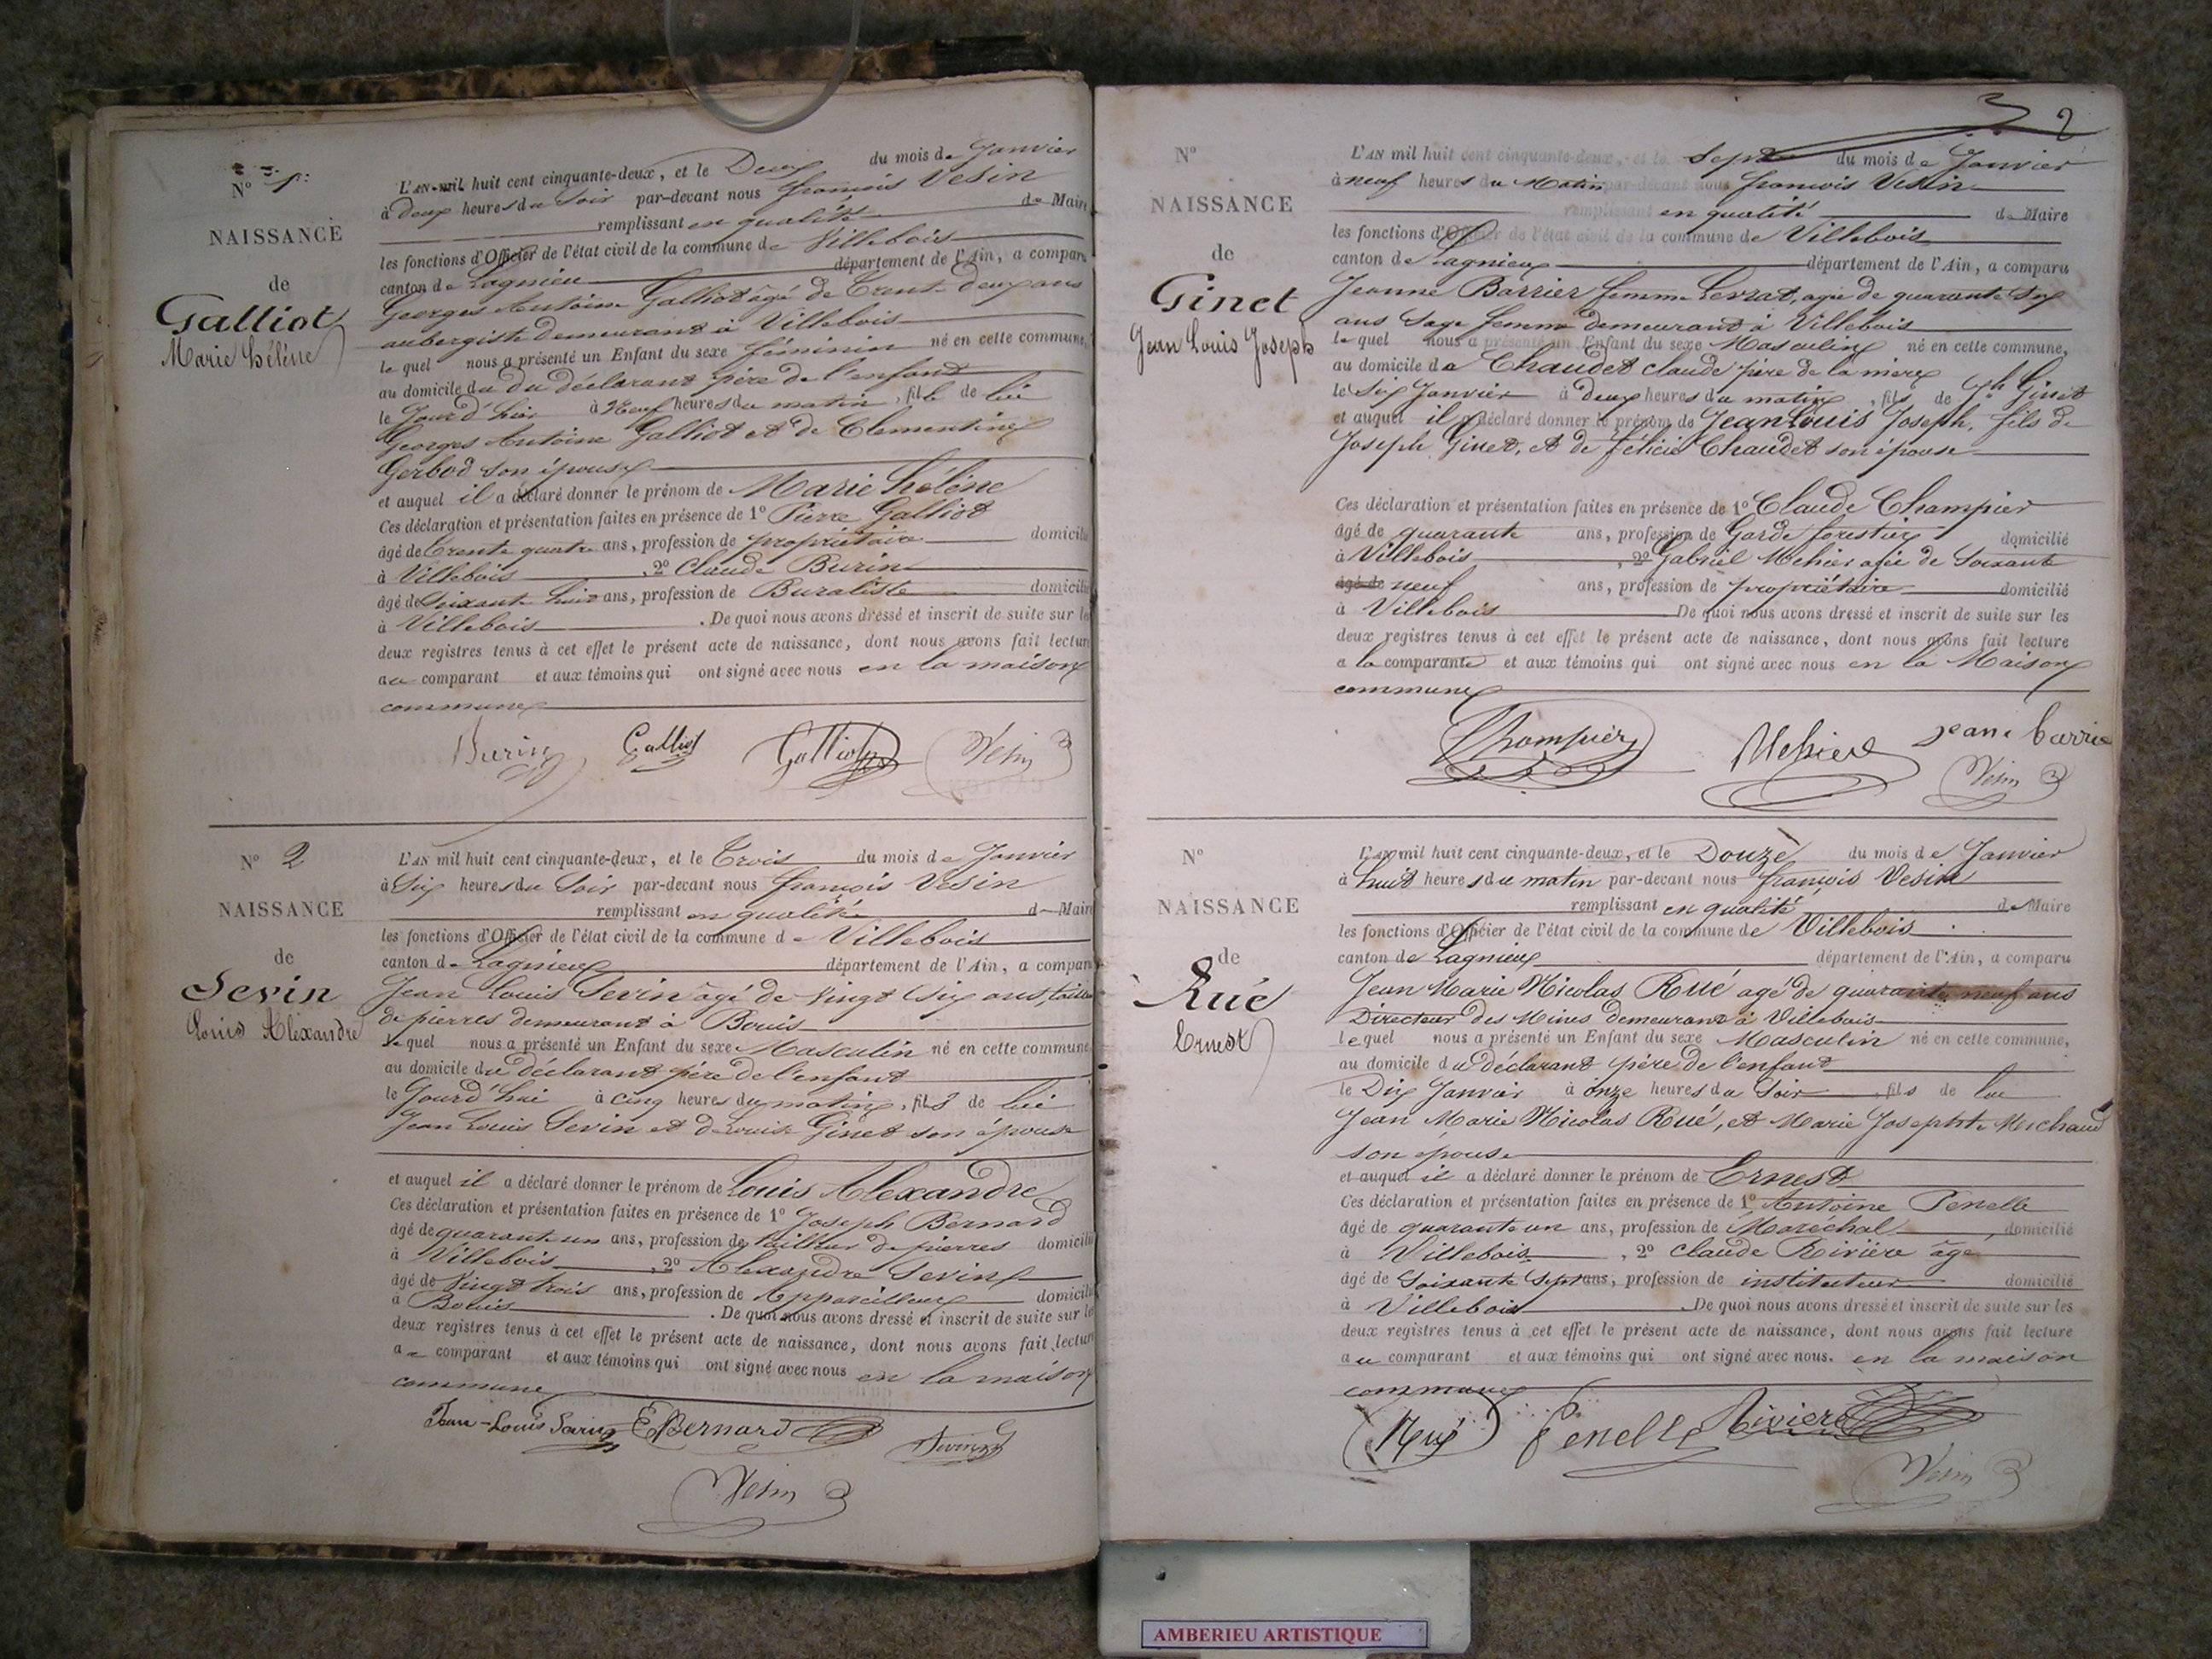 N° 1
NAISSANCE
de
Galliot
Marie hélène
L'AN mil huit cent cinquante-deux, et le Deux du mois de Janvier
à deux heures du Soir par-devant nous françois Vesin
remplissant en qualité de Maire
les fonctions d'Officier de l'état civil de la commune de Villebois
canton de Lagnieu département de l'Ain, a comparu
Georges Antoine Galliot âgé de Trente deux ans
aubergiste demeurant à Villebois
le quel nous a présenté un Enfant du sexe féminin né en cette commune,
au domicile du du déclarant père de l'enfant
le Jour d'hier à Neuf heures du matin, fille de lui
Georges Antoine Galliot et de Clementine
Gerbod son épouse
et auquel il a déclaré donner le prénom de Marie hélène
Ces déclaration et présentation faites en présence de 1° Pierre Galliot
âgé de trente quatre ans, profession de propriétaire domicilié
à Villebois, 2° Claude Burin
âgé de Soixante huit ans, profession de Buraliste domicilié
à Villebois. De quoi nous avons dressé et inscrit de suite sur les
deux registres tenus à cet effet le présent acte de naissance, dont nous avons fait lecture
au comparant et aux témoins qui ont signé avec nous en la maison
commune
Burin Galliot Galliot Vesin
N° 2
NAISSANCE
de
Sevin
Louis Alexandre
L'AN mil huit cent cinquante-deux, et le Trois du mois de Janvier
à Six heures du Soir par-devant nous françois Vesin
remplissant en qualité de Maire
les fonctions d'Officier de l'état civil de la commune de Villebois
canton de Lagnieu département de l'Ain, a comparu
Jean Louis Sevin âgé de Vingt Six ans, tailleur
de pierres demeurant à Bouis
le quel nous a présenté un Enfant du sexe Masculin né en cette commune
au domicile du déclarant père de l'enfant
le Jourd'hui à cinq heures du matin, fils de lui
Jean Louis Sevin et de Louise Ginet son épouse
et auquel il a déclaré donner le prénom de Louis Alexandre
Ces déclaration et présentation faites en présence de 1° Joseph Bernard
âgé de quarante un ans, profession de tailleur de pierres domicilié
à Villebois, 2° Alexandre Sevin
âgé de Vingt trois ans, profession de Appareilleur domicilié
à Bouis. De quoi nous avons dressé et inscrit de suite sur les
deux registres tenus à cet effet le présent acte de naissance, dont nous avons fait lecture
au comparant et aux témoins qui ont signé avec nous en la maison
commune
Jean-Louis Sevin Bernard Sevin
Vesin
2
N°
NAISSANCE
de
Ginet
Jean Louis Joseph
L'AN mil huit cent cinquante-deux, et le Sept du mois de Janvier
à neuf heures du Matin par-devant nous françois Vesin
remplissant en qualité de Maire
les fonctions d'Officier de l'état civil de la commune de Villebois
canton de Lagnieu département de l'Ain, a comparu
Jeanne Barrier femme Serrat, agée de quarante Six
ans Sage femme demeurant à Villebois
le quel nous a présenté un Enfant du sexe Masculin né en cette commune,
au domicile de Chaudet claude père de la mère
le Six Janvier à deux heures du matin, fils de Jh Ginet
et auquel il a déclaré donner le prénom de Jean Louis Joseph, fils de
Joseph Ginet, et de félicie Chaudet son épouse
Ces déclaration et présentation faites en présence de 1° Claude Champier
âgé de quarante ans, profession de Garde forestier domicilié
à Villebois, 2° Gabriel Mehier agée de Soixante
âgé de neuf ans, profession de propriétaire domicilié
à Villebois De quoi nous avons dressé et inscrit de suite sur les
deux registres tenus à cet effet le présent acte de naissance, dont nous avons fait lecture
a la comparante et aux témoins qui ont signé avec nous en la Maison
commune
Champier Mehier jeane barrie
Vesin
N°
NAISSANCE
de
Rué
Ernest
L'AN mil huit cent cinquante-deux, et le Douze du mois de Janvier
à huit heures du matin par-devant nous françois Vesin
remplissant en qualité de Maire
les fonctions d'Officier de l'état civil de la commune de Villebois
canton de Lagnieu département de l'Ain, a comparu
Jean Marie Nicolas Rué agé de quarante neuf ans
Directeur des Mines demeurant à Villebois
le quel nous a présenté un Enfant du sexe Masculin né en cette commune,
au domicile du déclarant père de l'enfant
le Dix Janvier à onze heures du Soir, fils de lui
Jean Marie Nicolas Rué, et Marie Josephte Michaud
son épouse
et auquel il a déclaré donner le prénom de Ernest
Ces déclaration et présentation faites en présence de 1° Antoine Penelle
âgé de quarante un ans, profession de Maréchal, domicilié
à Villebois, 2° Claude Rivière âgé
âgé de Soixante Sept ans, profession de instituteur domicilié
à Villebois. De quoi nous avons dressé et inscrit de suite sur les
deux registres tenus à cet effet le présent acte de naissance, dont nous avons fait lecture
au comparant et aux témoins qui ont signé avec nous. en la maison
commune
Rué Penelle Riviere
Vesin
AMBERIEU ARTISTIQUE